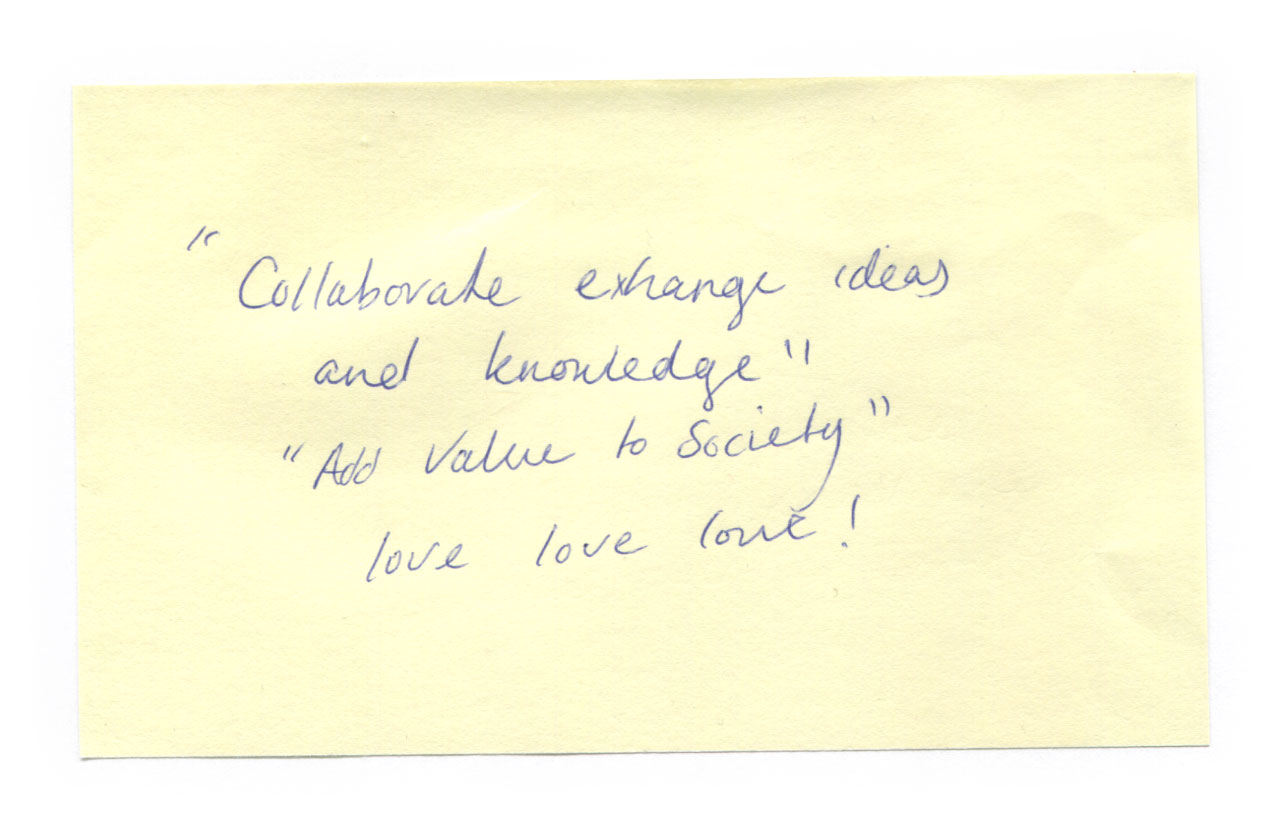 "Collaborate exhange ideas
and knowledge"
"Add Value to Society"
love love love!